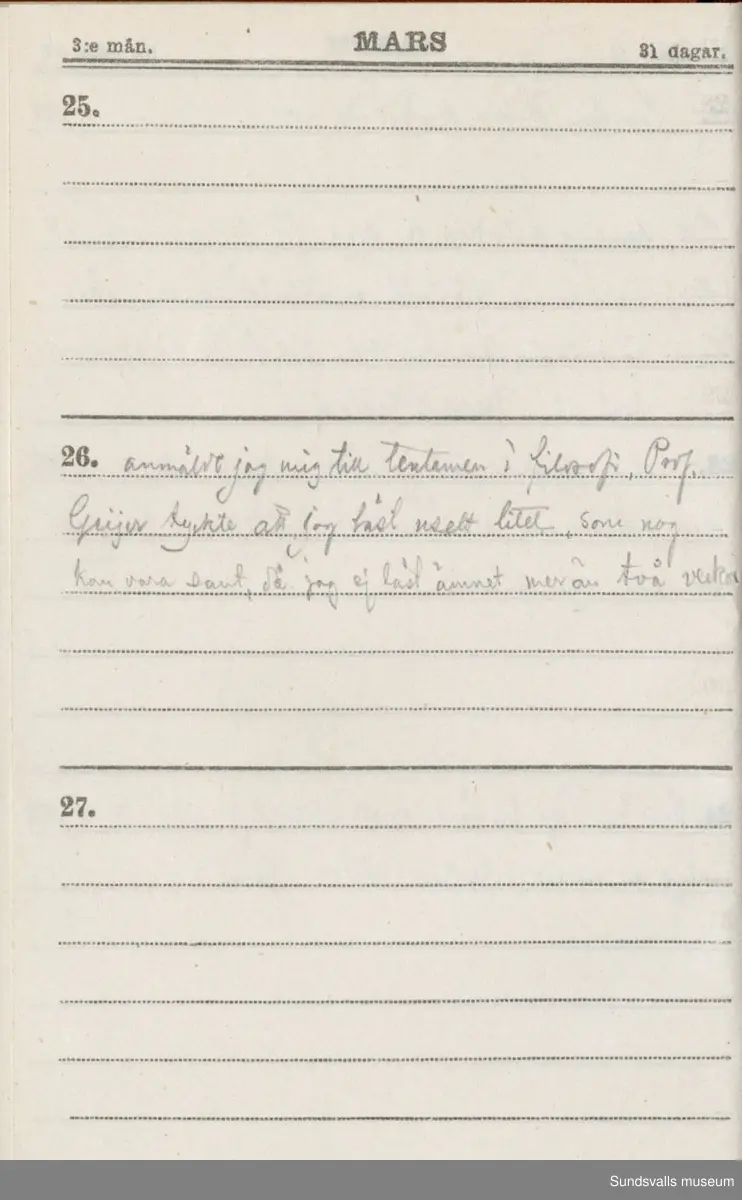 3:e mån. MARS 31 dagar.
25.
26. anmälde jag mig till tentamen i filosofi, Prof.
Geijer tyckte att jag läst uselt litet, som nog
kan vara sant, då jag ej läst ämnet mer än två veckor
27.
Sundsvalls museum